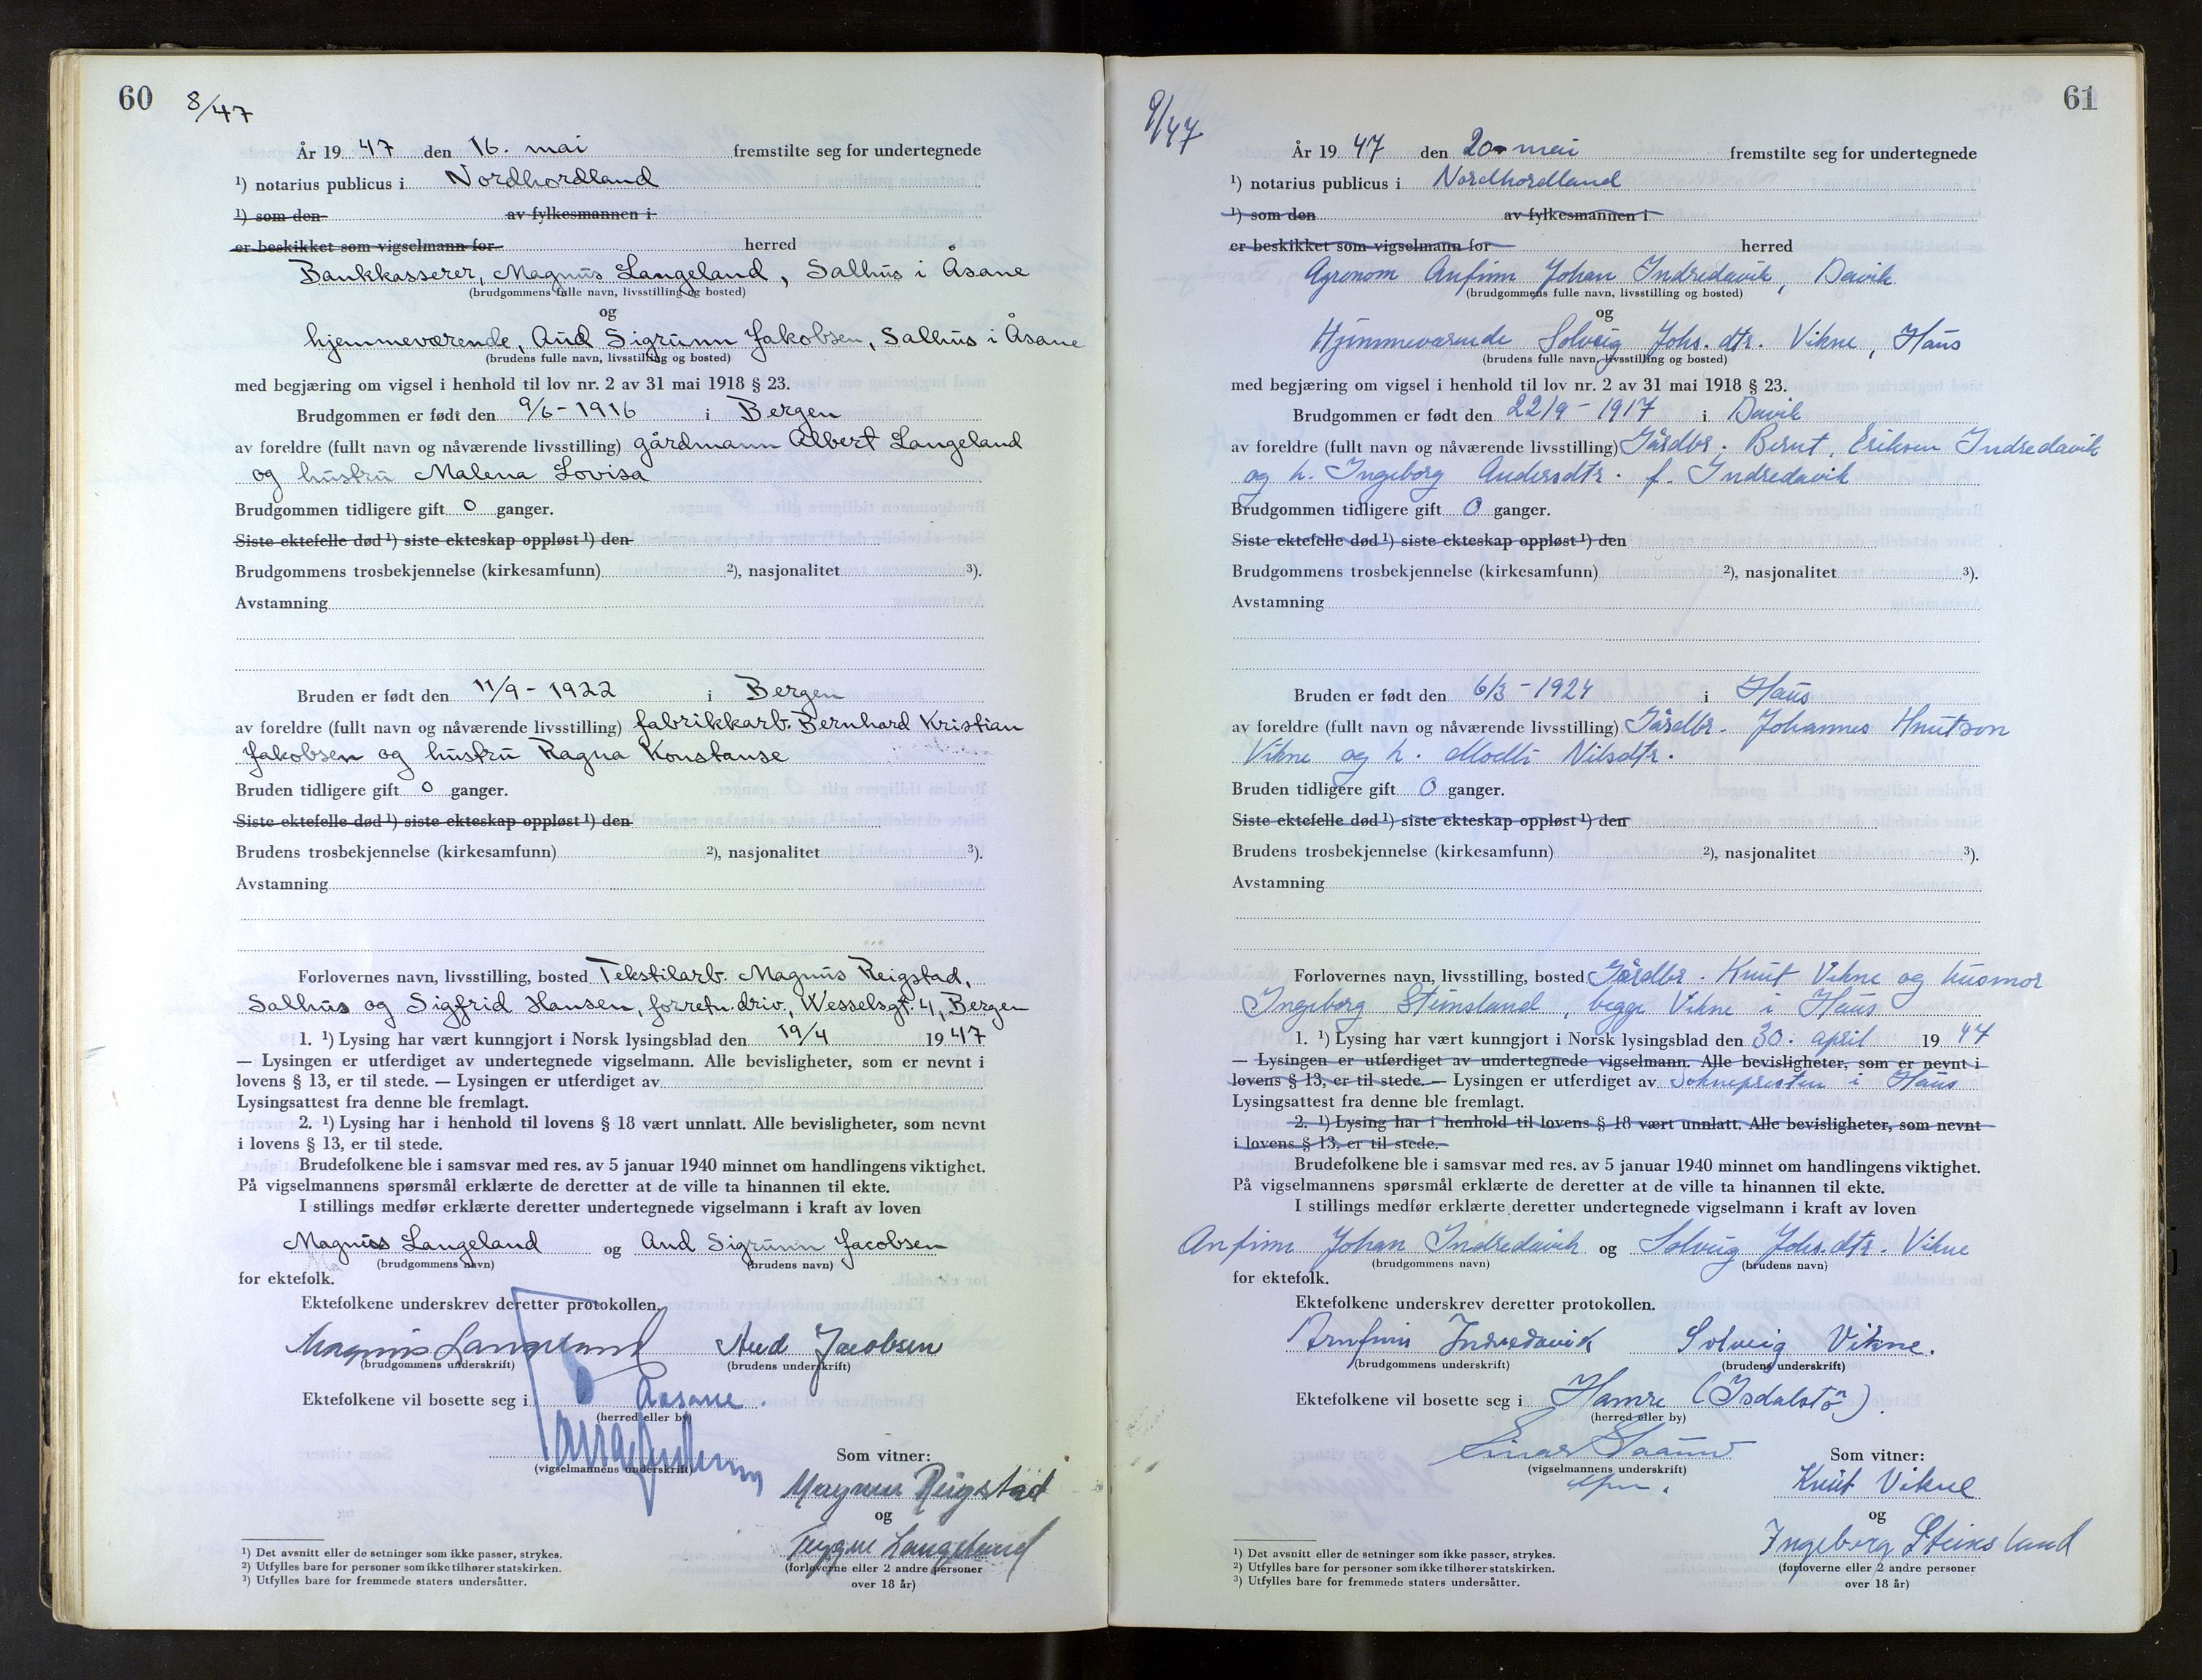 60
8/47
År 19 47 den 16. mai fremstilte seg for undertegnede
¹) notarius publicus i Nordhordland
¹) som den av fylkesmannen i
er beskikket som vigselmann for herred
Bankkasserer, Magnus Langeland, Salhus i Åsane
(brudgommens fulle navn, livsstilling og bosted)
og
hjemmeværende, Aud Sigrunn Jakobsen, Salhus i Åsane
(brudens fulle navn, livsstilling og bosted)
med begjæring om vigsel i henhold til lov nr. 2 av 31 mai 1918 § 23.
Brudgommen er født den 9/6 - 1916 i Bergen
av foreldre (fullt navn og nåværende livsstilling) gårdmann Albert Langeland
og hustru Malena Lovisa
Brudgommen tidligere gift 0 ganger.
Siste ektefelle død ¹) siste ekteskap oppløst ¹) den
Brudgommens trosbekjennelse (kirkesamfunn) ²), nasjonalitet ³).
Avstamning
Bruden er født den 11/9 - 1922 i Bergen
av foreldre (fullt navn og nåværende livsstilling) fabrikkarb. Bernhard Kristian
Jakobsen og hustru Ragna Konstanse
Bruden tidligere gift 0 ganger.
Siste ektefelle død ¹) siste ekteskap oppløst ¹) den
Brudens trosbekjennelse (kirkesamfunn) ²), nasjonalitet ³).
Avstamning
Forlovernes navn, livsstilling, bosted Tekstilarb. Magnus Reigstad,
Salhus og Sigfrid Hansen, forretn.driv., Wesselsgt. 4, Bergen
1. ¹) Lysing har vært kunngjort i Norsk lysingsblad den 19/4 19 47
— Lysingen er utferdiget av undertegnede vigselmann. Alle bevisligheter, som er nevnt i
lovens § 13, er til stede. — Lysingen er utferdiget av
Lysingsattest fra denne ble fremlagt.
2. ¹) Lysing har i henhold til lovens § 18 vært unnlatt. Alle bevisligheter, som nevnt
i lovens § 13, er til stede.
Brudefolkene ble i samsvar med res. av 5 januar 1940 minnet om handlingens viktighet.
På vigselmannens spørsmål erklærte de deretter at de ville ta hinannen til ekte.
I stillings medfør erklærte deretter undertegnede vigselmann i kraft av loven
Magnus Langeland og Aud Sigrunn Jacobsen
(brudgommens navn) (brudens navn)
for ektefolk.
Ektefolkene underskrev deretter protokollen.
Magnus Langeland Aud Jacobsen
(brudgommens underskrift) (brudens underskrift)
Ektefolkene vil bosette seg i Aasane.
(herred eller by)
Som vitner:
(vigselmannens underskrift)
Magnus Reigstad
og
Trygve Langeland
(forloverne eller 2 andre personer
over 18 år)
¹) Det avsnitt eller de setninger som ikke passer, strykes.
²) Utfylles bare for personer som ikke tilhører statskirken.
³) Utfylles bare for fremmede staters undersåtter.
61
9/47
År 19 47 den 20 mai fremstilte seg for undertegnede
¹) notarius publicus i Nordhordland
¹) som den av fylkesmannen i
er beskikket som vigselmann for herred
Agronom Anfinn Johan Indredavik, Davik
(brudgommens fulle navn, livsstilling og bosted)
og
Hjemmeværende Solveig Johs.dtr. Vikne, Haus
(brudens fulle navn, livsstilling og bosted)
med begjæring om vigsel i henhold til lov nr. 2 av 31 mai 1918 § 23.
Brudgommen er født den 22/9 - 1917 i Davik
av foreldre (fullt navn og nåværende livsstilling) Gårdbr. Bernt Eriksen Indredavik
og h. Ingeborg Andersdtr. f. Indredavik
Brudgommen tidligere gift 0 ganger.
Siste ektefelle død ¹) siste ekteskap oppløst ¹) den
Brudgommens trosbekjennelse (kirkesamfunn) ²), nasjonalitet ³).
Avstamning
Bruden er født den 6/3 - 1924 i Haus
av foreldre (fullt navn og nåværende livsstilling) Gårdbr. Johannes Knutson
Vikne og h. Molli Nilsdtr.
Bruden tidligere gift 0 ganger.
Siste ektefelle død ¹) siste ekteskap oppløst ¹) den
Brudens trosbekjennelse (kirkesamfunn) ²), nasjonalitet ³).
Avstamning
Forlovernes navn, livsstilling, bosted Gårdbr. Knut Vikne og husmor
Ingeborg Steinsland, begge Vikne i Haus
1. ¹) Lysing har vært kunngjort i Norsk lysingsblad den 30. april 19 47
— Lysingen er utferdiget av undertegnede vigselmann. Alle bevisligheter, som er nevnt i
lovens § 13, er til stede. — Lysingen er utferdiget av Soknepresten i Haus
Lysingsattest fra denne ble fremlagt.
2. ¹) Lysing har i henhold til lovens § 18 vært unnlatt. Alle bevisligheter, som nevnt
i lovens § 13, er til stede.
Brudefolkene ble i samsvar med res. av 5 januar 1940 minnet om handlingens viktighet.
På vigselmannens spørsmål erklærte de deretter at de ville ta hinannen til ekte.
I stillings medfør erklærte deretter undertegnede vigselmann i kraft av loven
Anfinn Johan Indredavik og Solveig Johs.dtr. Vikne
(brudgommens navn) (brudens navn)
for ektefolk.
Ektefolkene underskrev deretter protokollen.
Arnfinn Indredavik Solveig Vikne.
(brudgommens underskrift) (brudens underskrift)
Ektefolkene vil bosette seg i Hamre (Isdalstö).
(herred eller by)
Einar
Som vitner:
(vigselmannens underskrift)
Knut Vikne
og
Ingeborg Steinsland
(forloverne eller 2 andre personer
over 18 år)
¹) Det avsnitt eller de setninger som ikke passer, strykes.
²) Utfylles bare for personer som ikke tilhører statskirken.
³) Utfylles bare for fremmede staters undersåtter.